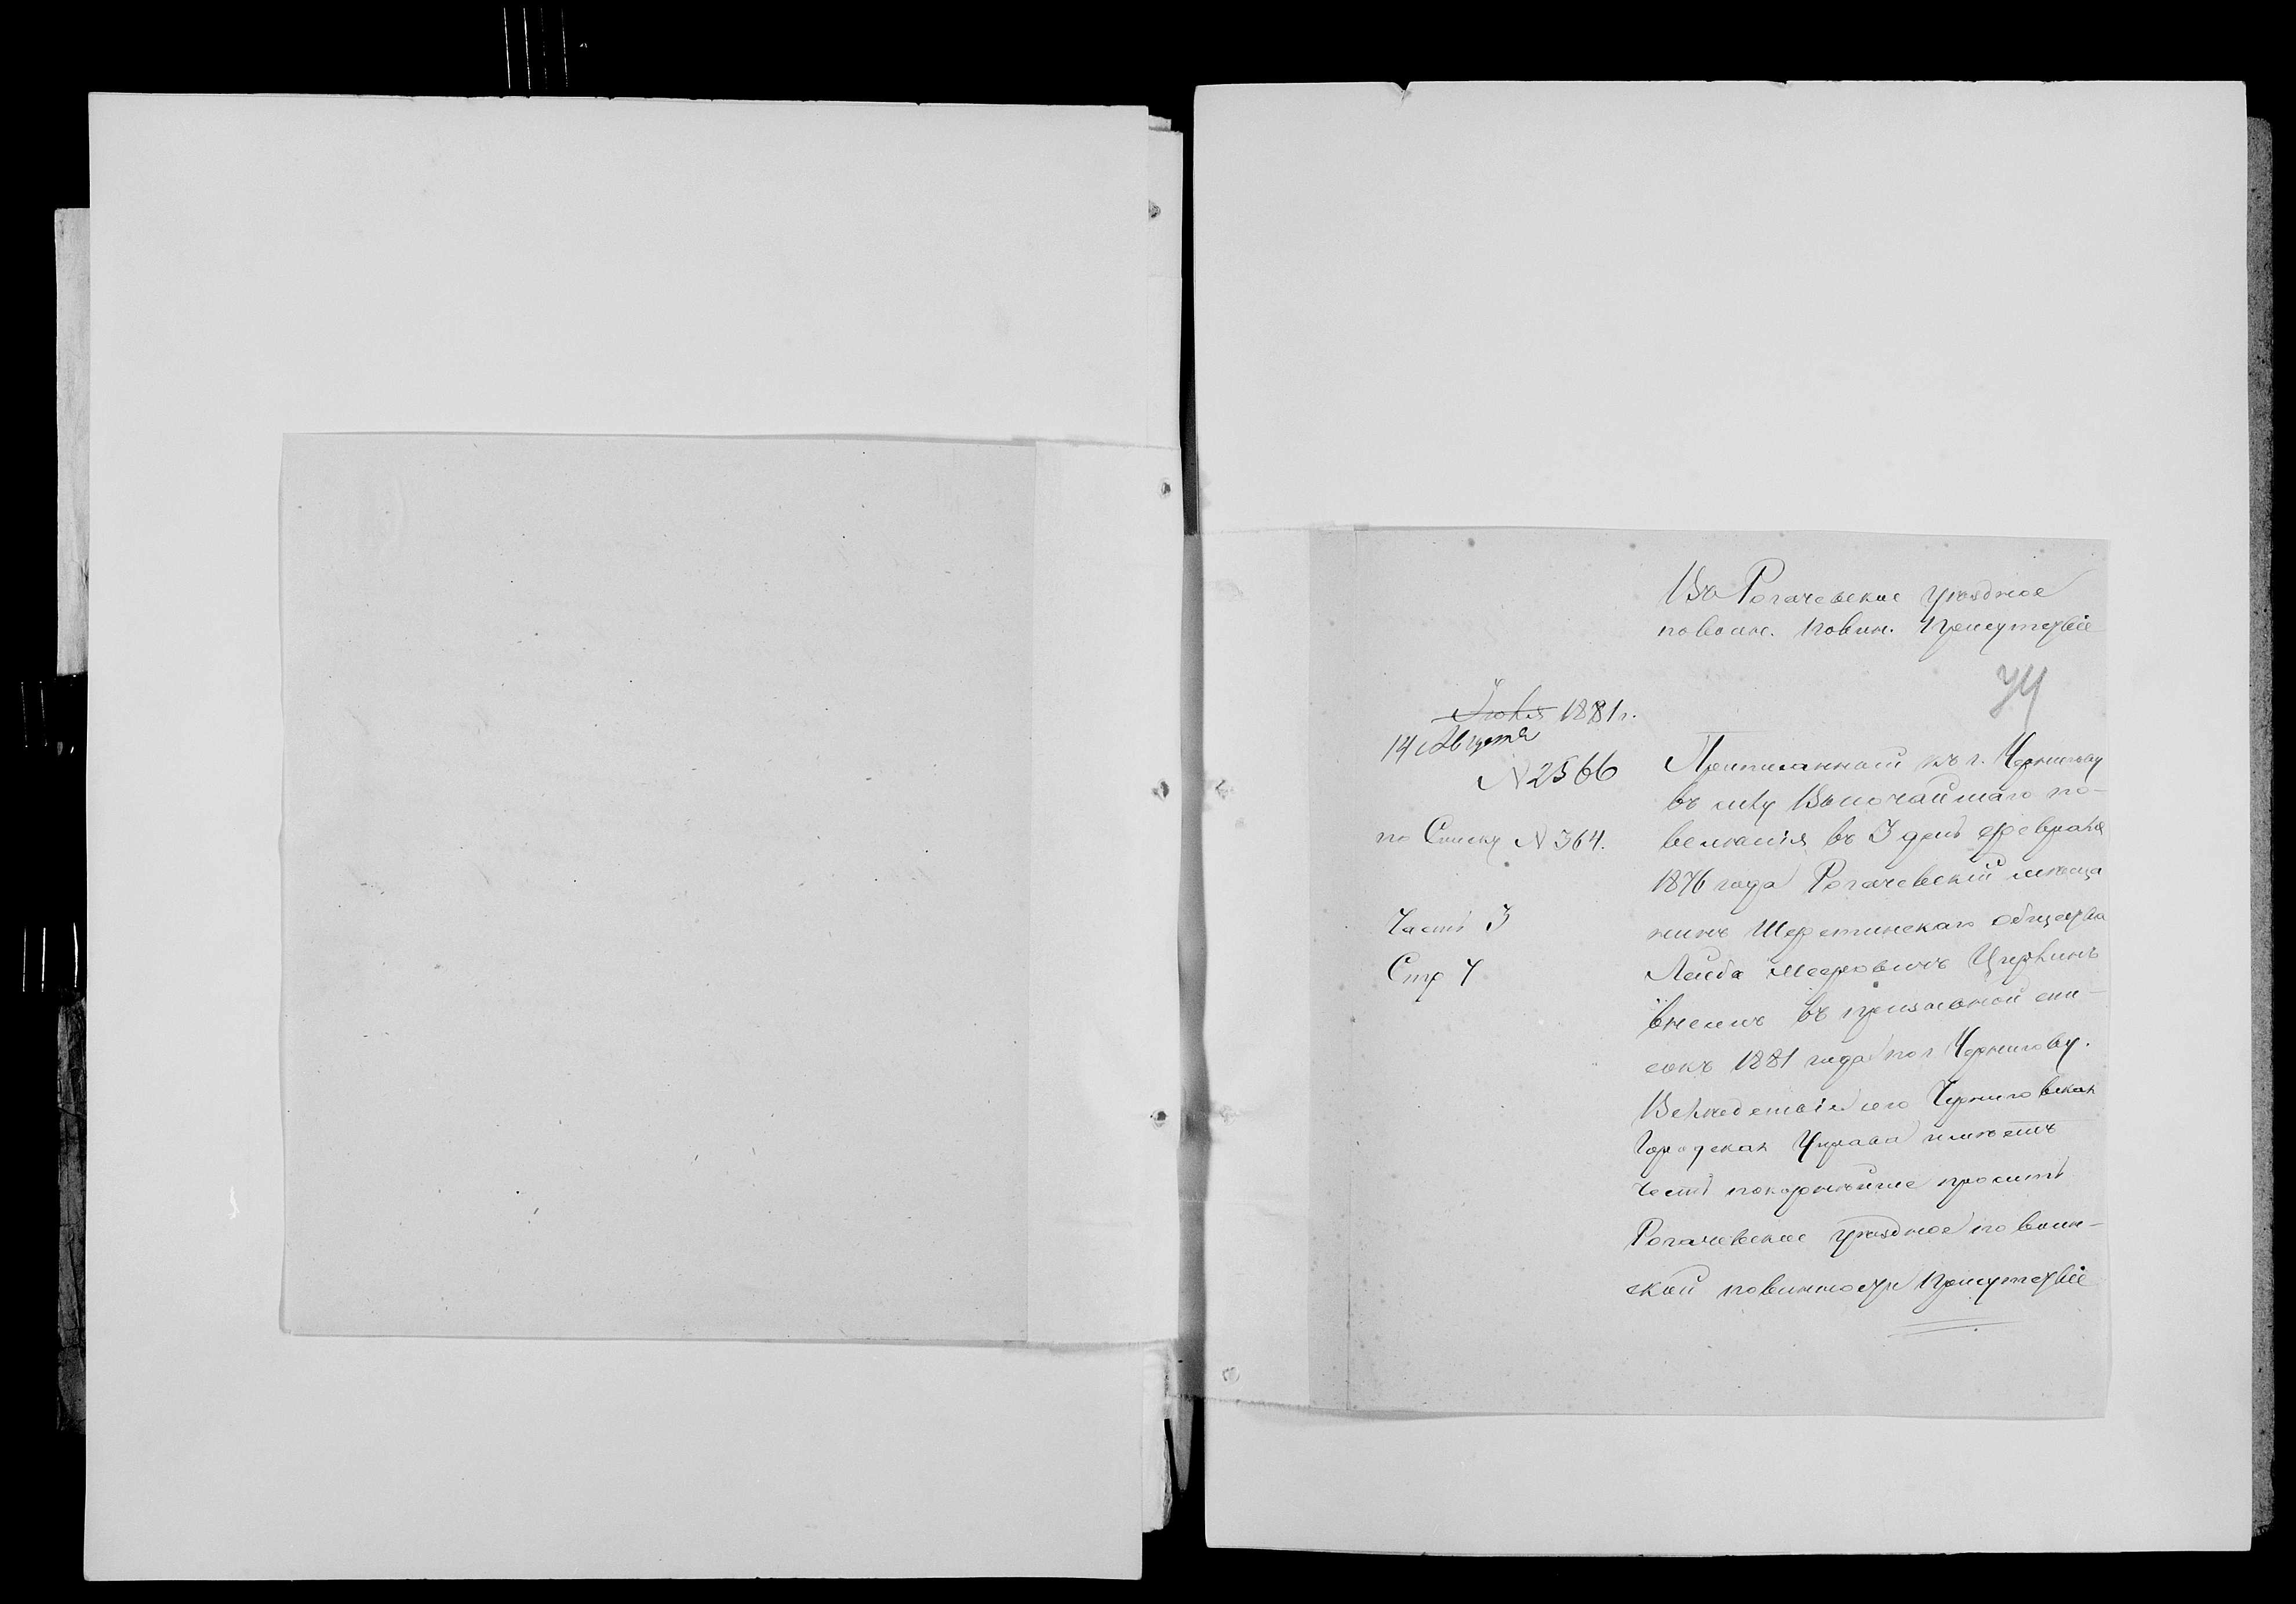 Въ Рогачевское уѣздное
по воин. повин. присутствіе
74
Іюля 1881 г.
14 Августа
№ 2566
по Списку № 364.
Часть 3
Стр 7
Приписанный къ г. Чернигову
въ силу Высочайшаго по-
велѣнія въ 3 день февраля
1876 года Рогачевскій мѣща
нинъ Шерстинскаго общества
Лейба Мееровичъ Цирлинъ
внесенъ въ призывной спи-
сокъ 1881 года по г Чернигову.
Вслѣдствіе сего Черниговская
Городская Управа имѣетъ
честь покорнѣйше просить
Рогачевское уѣздное по воин-
ской повинности присутствіе